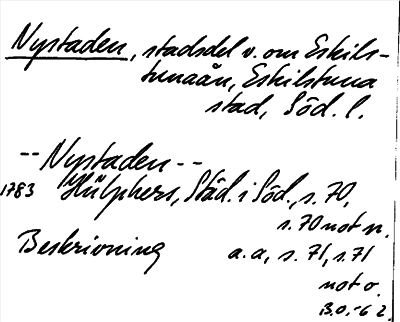 Nystaden, stadsdel v. om Eskils-
tunaån, Eskilstuna
stad, Söd. l.
-- Nystaden --
1783 Hülphers, Städ. i Söd., s. 70,
s. 70 not n.
Beskrivning a. a., s. 71, s. 71
not o.
B.O.-62.